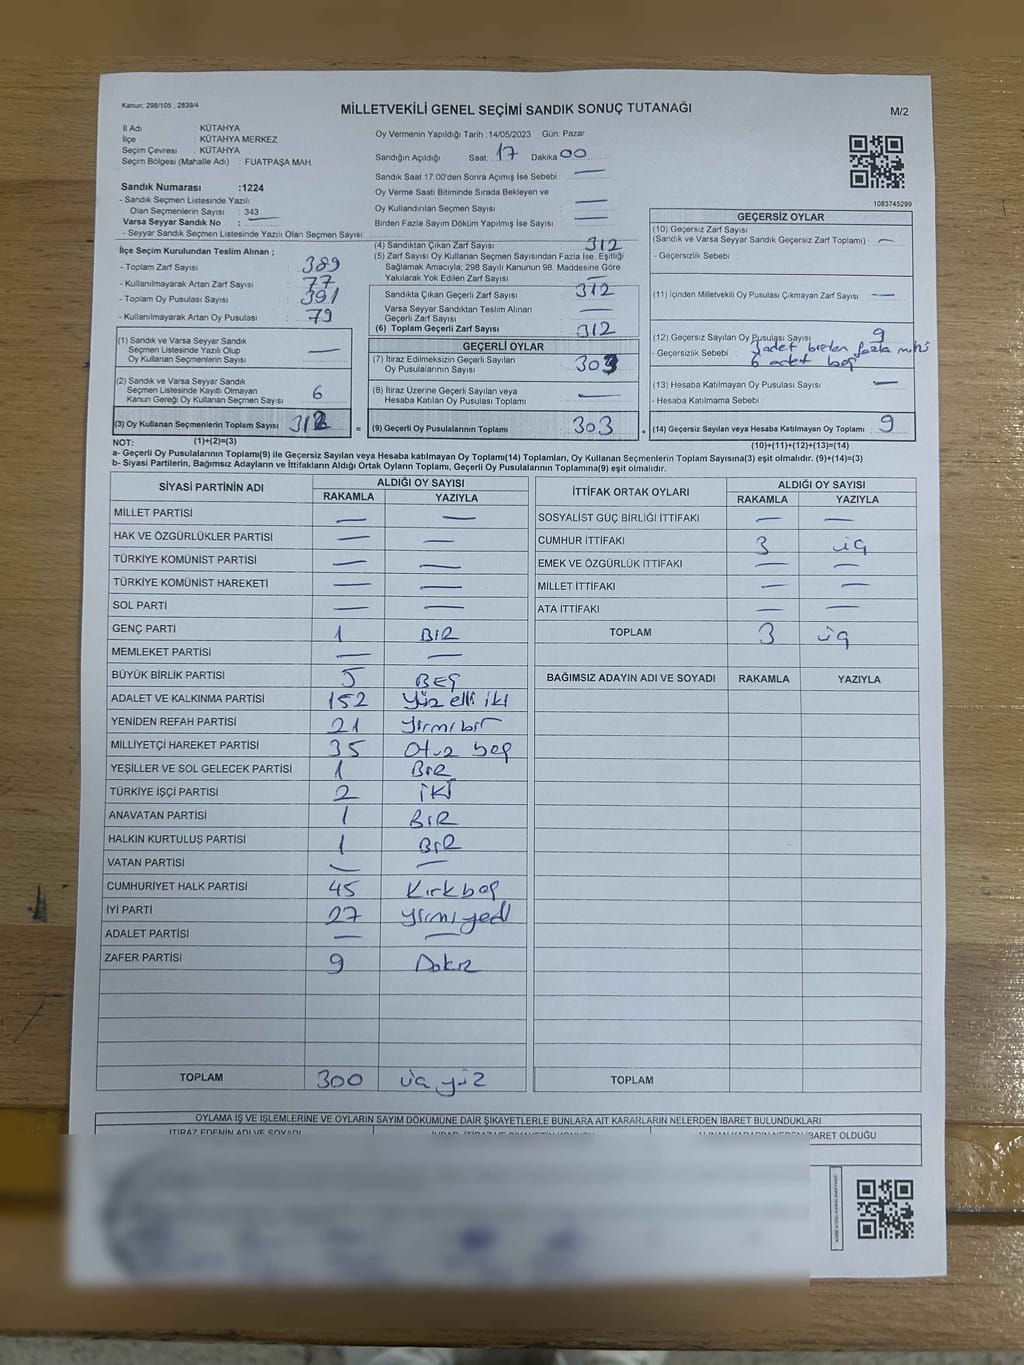 Kanun: 298/105 , 2839/4
MİLLETVEKİLİ GENEL SEÇİMİ SANDIK SONUÇ TUTANAĞI
M/2
İl Adı : KÜTAHYA
İlçe : KÜTAHYA MERKEZ
Seçim Çevresi : KÜTAHYA
Seçim Bölgesi (Mahalle Adı) : FUATPAŞA MAH.
Sandık Numarası :1224
- Sandık Seçmen Listesinde Yazılı
Olan Seçmenlerin Sayısı : 343
Varsa Seyyar Sandık No : —
- Seyyar Sandık Seçmen Listesinde Yazılı Olan Seçmen Sayısı:
İlçe Seçim Kurulundan Teslim Alınan ;
- Toplam Zarf Sayısı : 389
- Kullanılmayarak Artan Zarf Sayısı : 77
- Toplam Oy Pusulası Sayısı : 391
- Kullanılmayarak Artan Oy Pusulası : 79
(1) Sandık ve Varsa Seyyar Sandık
Seçmen Listesinde Yazılı Olup
Oy Kullanan Seçmenlerin Sayısı —
(2) Sandık ve Varsa Seyyar Sandık
Seçmen Listesinde Kayıtlı Olmayan
Kanun Gereği Oy Kullanan Seçmen Sayısı 6
(3) Oy Kullanan Seçmenlerin Toplam Sayısı 312
Oy Vermenin Yapıldığı Tarih :14/05/2023 Gün: Pazar
Sandığın Açıldığı Saat: 17 Dakika 00
Sandık Saat 17:00'den Sonra Açımış İse Sebebi : —
Oy Verme Saati Bitiminde Sırada Bekleyen ve
Oy Kullandırılan Seçmen Sayısı —
Birden Fazla Sayım Döküm Yapılmış İse Sayısı : —
(4) Sandıktan Çıkan Zarf Sayısı 312
(5) Zarf Sayısı Oy Kullanan Seçmen Sayısından Fazla İse, Eşitliği
Sağlamak Amacıyla, 298 Sayılı Kanunun 98. Maddesine Göre
Yakılarak Yok Edilen Zarf Sayısı —
Sandıkta Çıkan Geçerli Zarf Sayısı 312
Varsa Seyyar Sandıktan Teslim Alınan
Geçerli Zarf Sayısı —
(6) Toplam Geçerli Zarf Sayısı 312
GEÇERLİ OYLAR
(7) İtiraz Edilmeksizin Geçerli Sayılan
Oy Pusulalarının Sayısı 303
(8) İtiraz Üzerine Geçerli Sayılan veya
Hesaba Katılan Oy Pusulası Toplamı —
= (9) Geçerli Oy Pusulalarının Toplamı 303
1083745299
GEÇERSİZ OYLAR
(10) Geçersiz Zarf Sayısı
(Sandık ve Varsa Seyyar Sandık Geçersiz Zarf Toplamı) : —
- Geçersizlik Sebebi :
(11) İçinden Milletvekili Oy Pusulası Çıkmayan Zarf Sayısı : —
(12) Geçersiz Sayılan Oy Pusulası Sayısı 9
- Geçersizlik Sebebi : adet birden fazla
6 adet boş
(13) Hesaba Katılmayan Oy Pusulası Sayısı : —
- Hesaba Katılmama Sebebi :
(14) Geçersiz Sayılan veya Hesaba Katılmayan Oy Toplamı : 9
NOT: (1)+(2)=(3)
(10)+(11)+(12)+(13)=(14)
a- Geçerli Oy Pusulalarının Toplamı(9) ile Geçersiz Sayılan veya Hesaba katılmayan Oy Toplamı(14) Toplamları, Oy Kullanan Seçmenlerin Toplam Sayısına(3) eşit olmalıdır. (9)+(14)=(3)
b- Siyasi Partilerin, Bağımsız Adayların ve İttifakların Aldığı Ortak Oyların Toplamı, Geçerli Oy Pusulalarının Toplamına(9) eşit olmalıdır.
SİYASİ PARTİNİN ADI ALDIĞI OY SAYISI
RAKAMLA YAZIYLA
MİLLET PARTİSİ — —
HAK VE ÖZGÜRLÜKLER PARTİSİ — —
TÜRKİYE KOMÜNİST PARTİSİ — —
TÜRKİYE KOMÜNİST HAREKETİ — —
SOL PARTİ — —
GENÇ PARTİ 1 BİR
MEMLEKET PARTİSİ — —
BÜYÜK BİRLİK PARTİSİ 5 BEŞ
ADALET VE KALKINMA PARTİSİ 152 Yüz elli iki
YENİDEN REFAH PARTİSİ 21 yirmi bir
MİLLİYETÇİ HAREKET PARTİSİ 35 Otuz beş
YEŞİLLER VE SOL GELECEK PARTİSİ 1 BİR
TÜRKİYE İŞÇİ PARTİSİ 2 İKİ
ANAVATAN PARTİSİ 1 BİR
HALKIN KURTULUŞ PARTİSİ 1 BİR
VATAN PARTİSİ — —
CUMHURİYET HALK PARTİSİ 45 Kırkbeş
İYİ PARTİ 27 yirmiyedi
ADALET PARTİSİ — —
ZAFER PARTİSİ 9 Dokız
TOPLAM 300 üç yüz
İTTİFAK ORTAK OYLARI ALDIĞI OY SAYISI
RAKAMLA YAZIYLA
SOSYALİST GÜÇ BİRLİĞİ İTTİFAKI — —
CUMHUR İTTİFAKI 3 üç
EMEK VE ÖZGÜRLÜK İTTİFAKI — —
MİLLET İTTİFAKI — —
ATA İTTİFAKI — —
TOPLAM 3 üç
BAĞIMSIZ ADAYIN ADI VE SOYADI RAKAMLA YAZIYLA
TOPLAM
OYLAMA İŞ VE İŞLEMLERİNE VE OYLARIN SAYIM DÖKÜMÜNE DAİR ŞİKAYETLERLE BUNLARA AİT KARARLARIN NELERDEN İBARET BULUNDUKLARI
İTİRAZ EDENİN ADI VE SOYADI
İBARET OLDUĞU